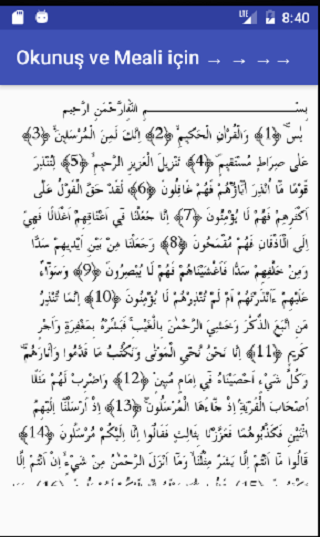 8:40
Okunuş ve Meali için → → → →
بِسْــــــــمِ اللهِ الرَّحْمٰنِ الرَّحِيمِ
يٰسٓ ﴿1﴾ وَالْقُرْاٰنِ الْحَكِيمِ ﴿2﴾ اِنَّكَ لَمِنَ الْمُرْسَلِينَ ﴿3﴾
عَلٰى صِرَاطٍ مُسْتَقِيمٍ ﴿4﴾ تَنْزِيلَ الْعَزِيزِ الرَّحِيمِ ﴿5﴾ لِتُنْذِرَ
قَوْمًا مَٓا اُنْذِرَ اٰبَٓاؤُ۬هُمْ فَهُمْ غَافِلُونَ ﴿6﴾ لَقَدْ حَقَّ الْقَوْلُ عَلٰٓى
اَكْثَرِهِمْ فَهُمْ لَا يُؤْمِنُونَ ﴿7﴾ اِنَّا جَعَلْنَا فِٓي اَعْنَاقِهِمْ اَغْلَالًا فَهِيَ
اِلَى الْاَذْقَانِ فَهُمْ مُقْمَحُونَ ﴿8﴾ وَجَعَلْنَا مِنْ بَيْنِ اَيْدِيهِمْ سَدًّا
وَمِنْ خَلْفِهِمْ سَدًّا فَاَغْشَيْنَاهُمْ فَهُمْ لَا يُبْصِرُونَ ﴿9﴾ وَسَوَٓاءٌ
عَلَيْهِمْ ءَاَنْذَرْتَهُمْ اَمْ لَمْ تُنْذِرْهُمْ لَا يُؤْمِنُونَ ﴿10﴾ اِنَّمَا تُنْذِرُ
مَنِ اتَّبَعَ الذِّكْرَ وَخَشِيَ الرَّحْمٰنَ بِالْغَيْبِ فَبَشِّرْهُ بِمَغْفِرَةٍ وَاَجْرٍ
كَرِيمٍ ﴿11﴾ اِنَّا نَحْنُ نُحْيِ الْمَوْتٰى وَنَكْتُبُ مَا قَدَّمُوا وَاٰثَارَهُمْ
وَكُلَّ شَيْءٍ اَحْصَيْنَاهُ فِٓي اِمَامٍ مُبِينٍ ﴿12﴾ وَاضْرِبْ لَهُمْ مَثَلًا
اَصْحَابَ الْقَرْيَةِ اِذْ جَٓاءَهَا الْمُرْسَلُونَ ﴿13﴾ اِذْ اَرْسَلْنَٓا اِلَيْهِمُ
اثْنَيْنِ فَكَذَّبُوهُمَا فَعَزَّزْنَا بِثَالِثٍ فَقَالُٓوا اِنَّٓا اِلَيْكُمْ مُرْسَلُونَ ﴿14﴾
قَالُوا مَٓا اَنْتُمْ اِلَّا بَشَرٌ مِثْلُنَا وَمَٓا اَنْزَلَ الرَّحْمٰنُ مِنْ شَيْءٍ اِنْ اَنْتُمْ اِلَّا